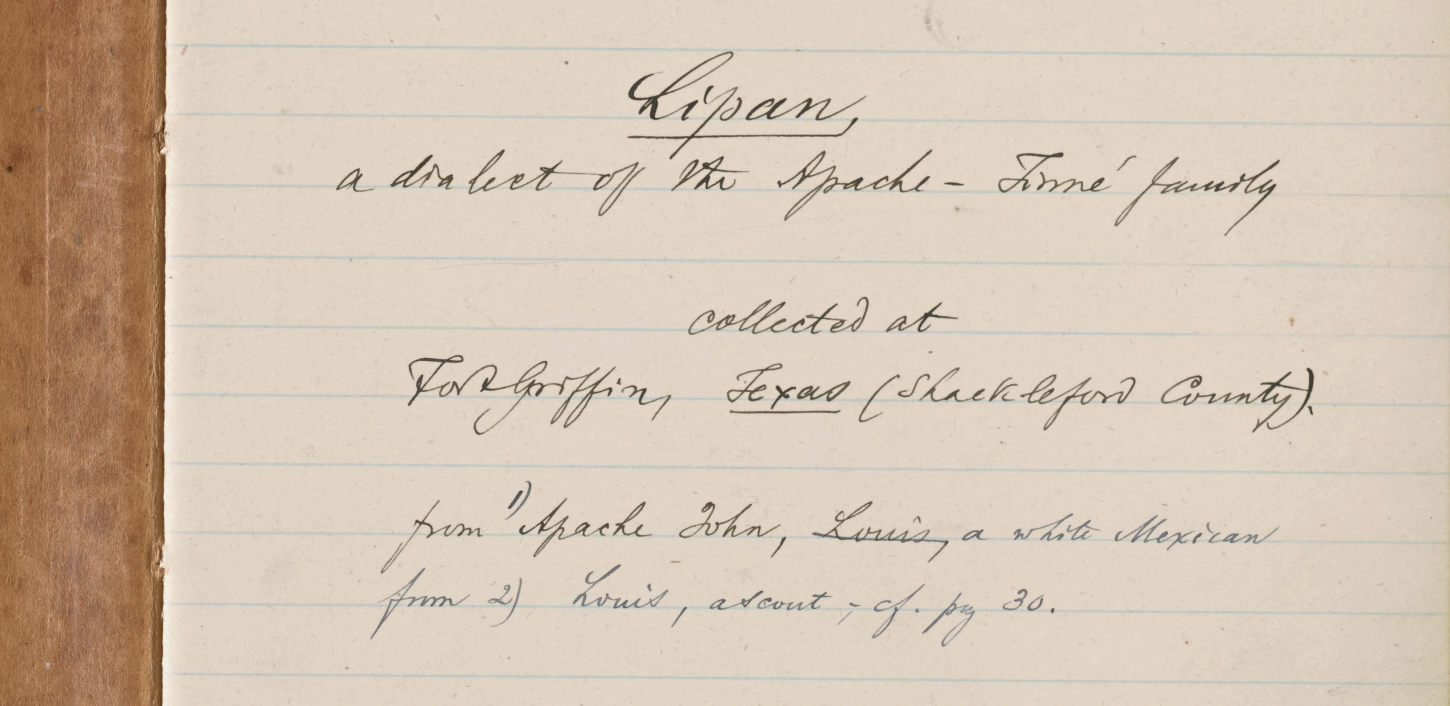 Lipan,
a dialect of the Apache - Tinné family
collected at
Fort Griffin, Texas (Shackleford County).
from 1) Apache John, Louis, a white Mexican
from 2) Louis, a scout; cf. pg 30.